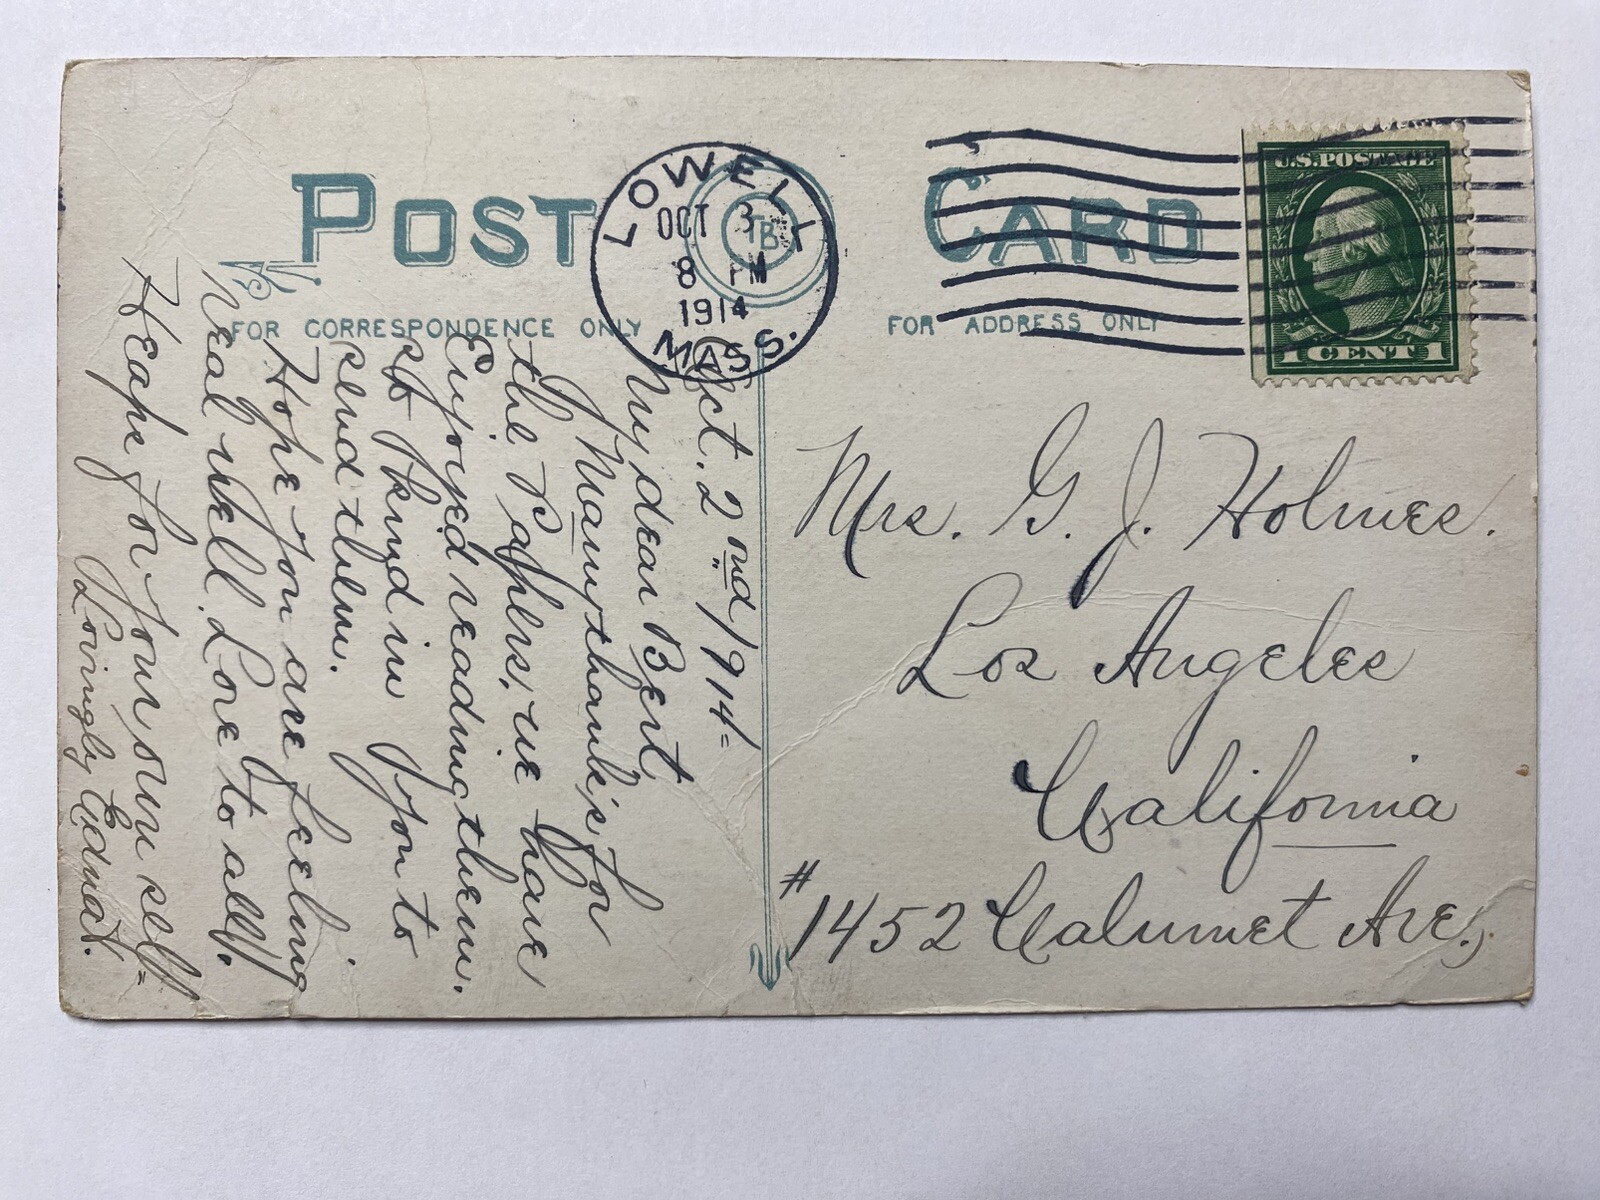 POST CARD
FOR CORRESPONDENCE ONLY
FOR ADDRESS ONLY
LOWELL
OCT 3
8 PM
1914
MASS.
TB
U.S. POSTAGE
1 CENT 1
Oct. 2nd 1914=
My dear Bert
Many thanks for
the Papers, we have
Enjoyed reading them.
so kind in you to
send them.
Hope you are feeling
real well. Love to all.
Heaps for your own self=
Lovingly Edna
Mrs. G. J. Holmes.
Los Angeles
California
#1452 Calumet Ave.,